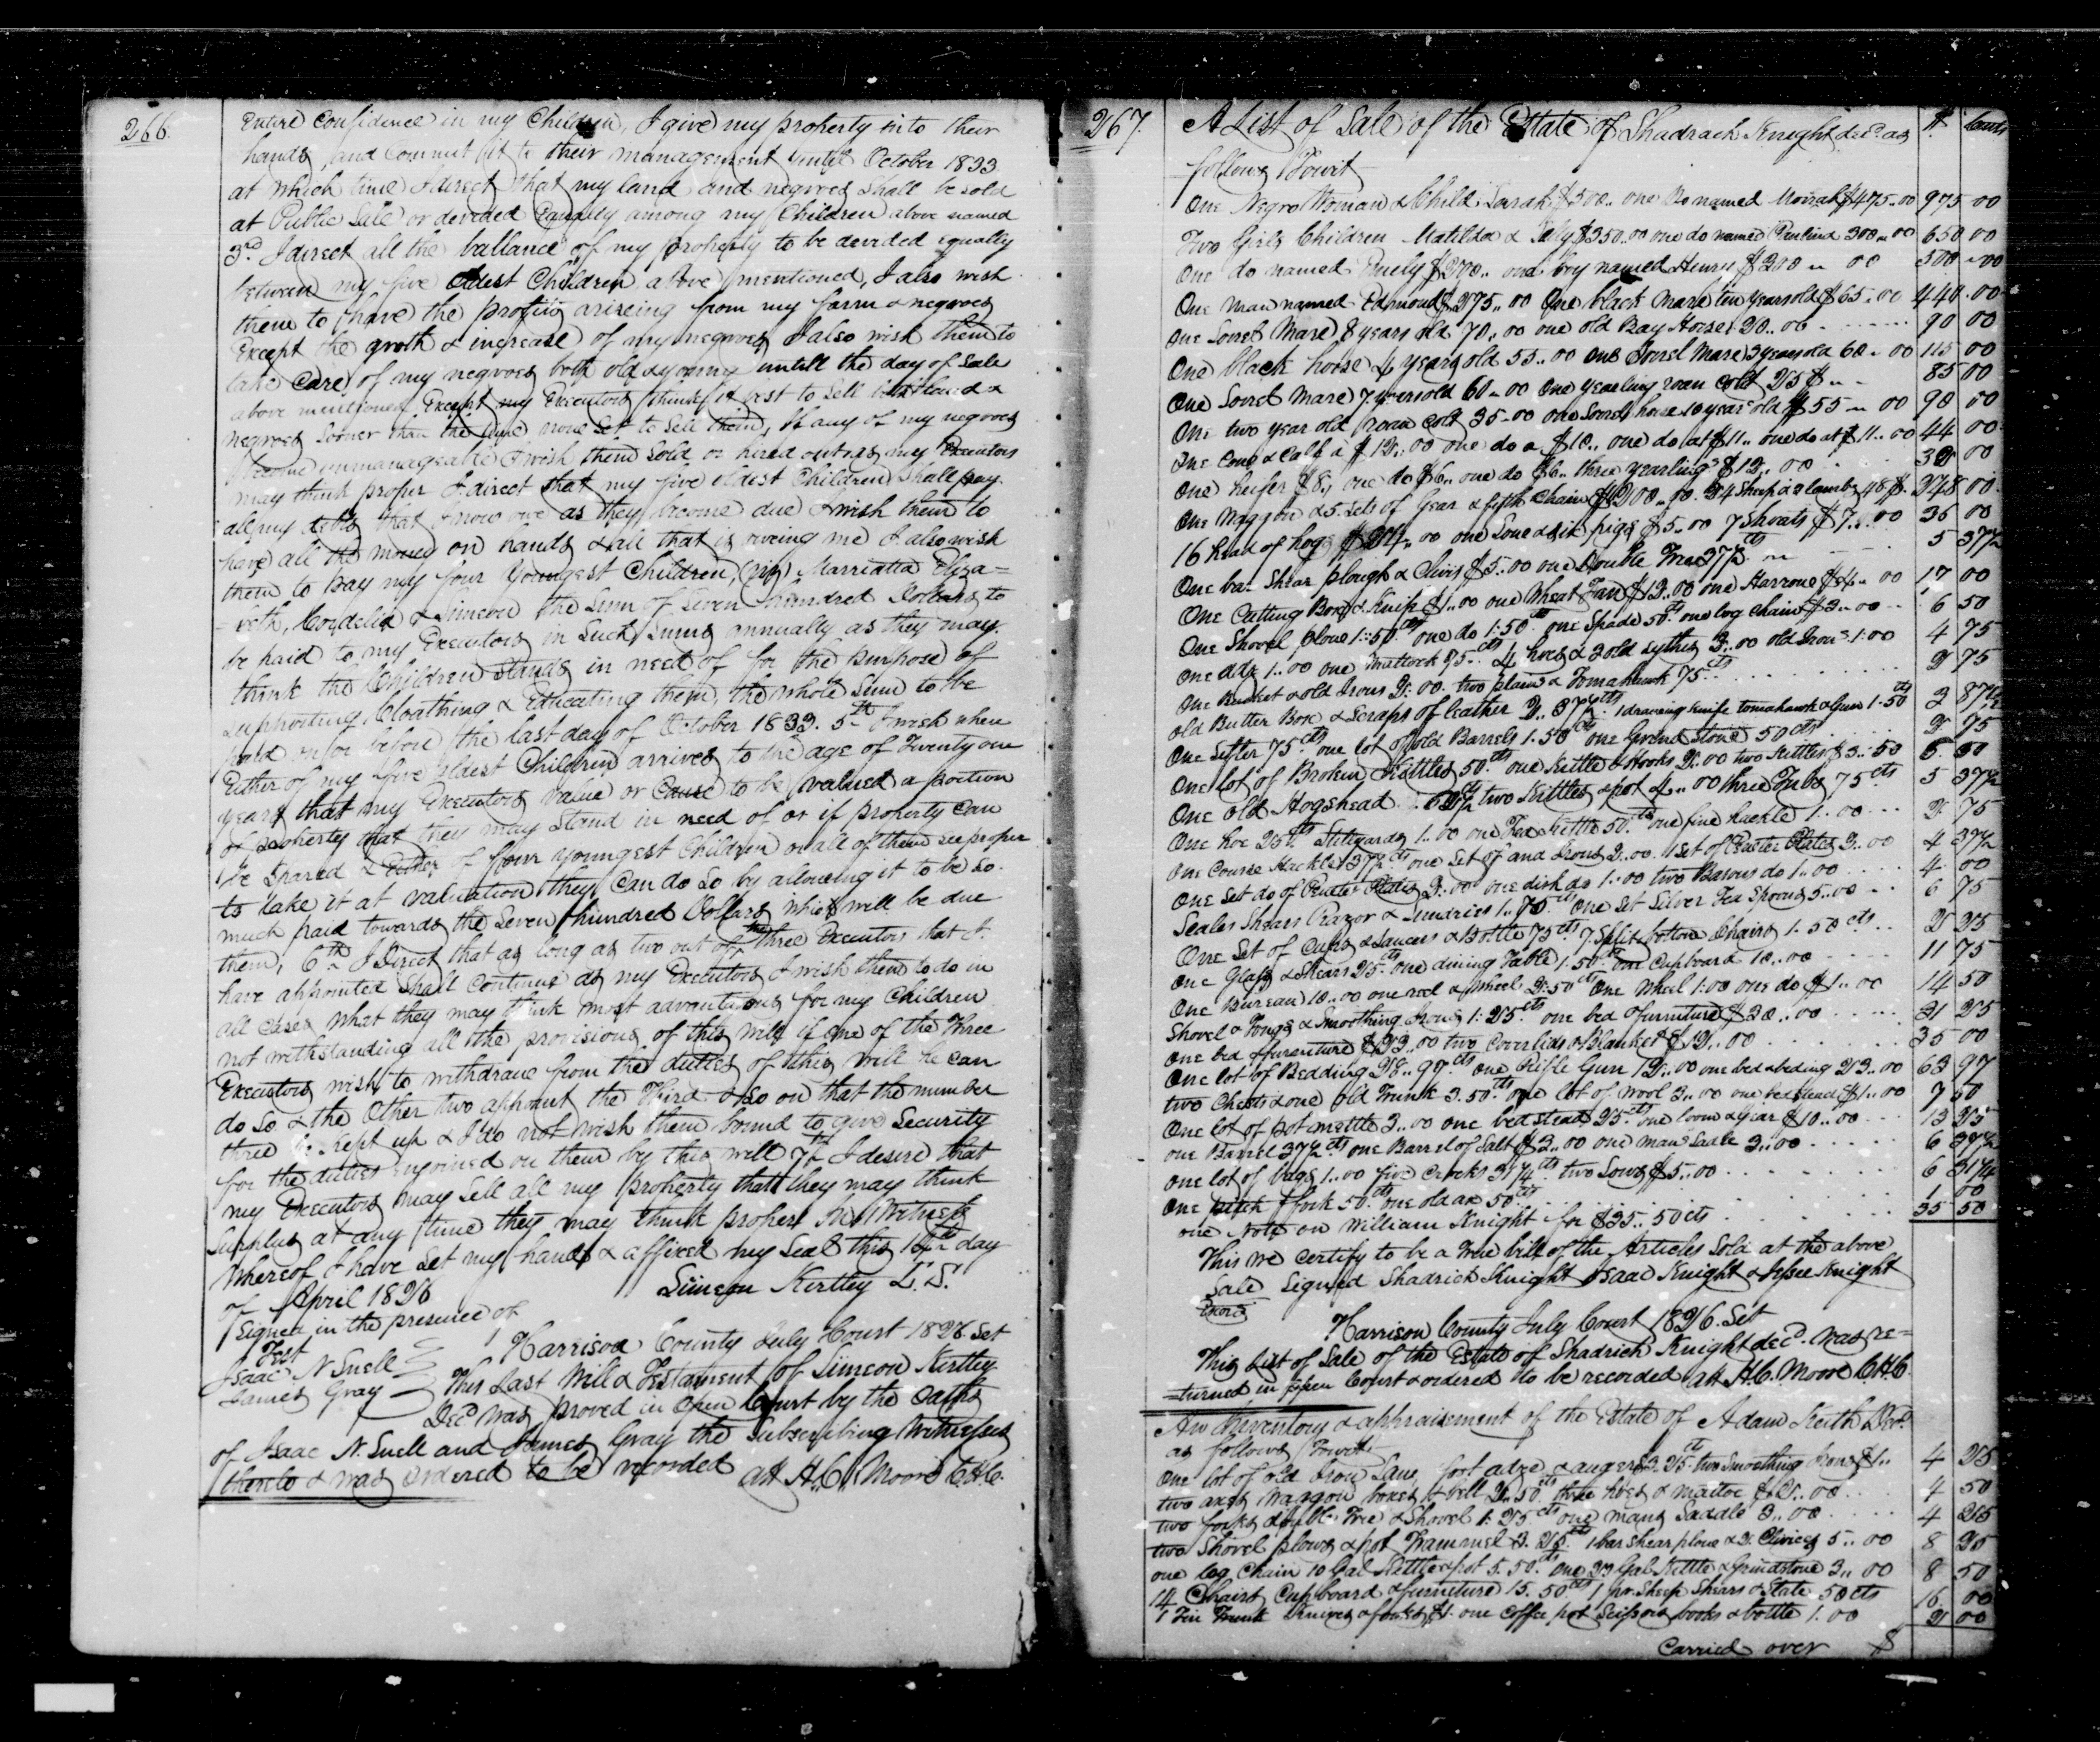 266.
Entire Confidence in my Children, I give my property into their
hands, and Commit it to their management untill October 1833
at which time I direct that my land and negroes shall be sold
at Public Sale or devided Equally among my Children above named
3rd I direct all the ballance of my property to be devided equally
between my five oldest Children above mentioned, I also wish
them to have the profits ariseing from my farm & negroes
Except the groth & increase of my negroes I also wish them to
take Care of my negroes both old & young untill the day of Sale
above mentioned Except my Executors think it best to Sell land &
negroes sooner than the time set to Sell them, If any of my negroes
become unmanageable I wish them Sold or hired out as my Executors
may think proper I direct that my five oldest Children Shall pay
all my debts that I now owe as they become due I wish them to
have all the money on hands & all that is oweing me I also wish
them to pay my four Youngest Children, (viz) Marriatta Eliza=
=beth, Cordelia & Simeon the Sum of Seven hundred Dollars to
be paid to my Executors in Such Sums annually as they may
think the Children stands in need of for the purpose of
Supporting Cloathing & Educating them, the whole Sum to be
paid on or before the last day of October 1833. 5th I wish when
Either of my five oldest Children arrives to the age of Twenty one
years that my Executors value or Cause to be valued a portion
of property that they may stand in need of or if property can
be Spared & Either of four youngest Children or all of them see proper
to take it at valuation they Can do So by allowing it to be so
much paid towards the Seven hundred Dollars which will be due
them, 6th I Direct that as long as two out of the three Executors that I
have appointed Shall Continue as my Executors I wish them to do in
all Cases what they may think most advantagous for my Children
not withstanding all the provisions of this will if one of the Three
Executors wish to withdraw from the duties of this will he can
do so & the Other two appoint the Third & so on that the number
three be kept up & I do not wish them bound to give Security
for the duties enjoined on them by this will 7th I desire that
my Executors may Sell all my property that they may think
Surplus at any time they may think proper In Witness
Whereof I have Set my hand & affixed my Seal this 16th day
of April 1826
Simeon Kertley L.S.
Signed in the presence of
Test
Isaac N Snell
James Gray
Harrison County July Court 1826 Set
This Last Will & Testament of Simeon Kertley
Decd was proved in Open Court by the Oaths
of Isaac N. Snell and James Gray the Subscribing Witnesses
thereto & was Ordered to be recorded att H.C. Moore C.H.C.
267.
A List of Sale of the Estate of Shadrach Knight decd. as
$ Cents
follows Towit
One Negro Woman & Child Sarah $500.. one Do named Moriah $475..00 975 00
Two Girls Children Matilda & July $350.00 one do named Paulina 300..00 650 00
One do named $200.. one boy named Henry $300 .. 00 500 .. 00
One man named Edmond $375..00 One black Mare ten years old $65..00 440.00
One Sorrel Mare 8 years old 70..00 one old Bay Horse 20..00 90 00
One black horse 4 years old 55..00 one Sorrel Mare 3 years old 60..00 115 00
One Sorrel Mare 7 years old 60..00 One yearling roan Colt 25 $ 85 00
One two year old roan Colt 35..00 one Sorrel horse 10 year old $55..00 90 00
One Cow & Calf a $12..00 one do a $10.. one do at $11.. one do at $11..00 44 00
One heifer $8.. one do $6.. one do $6.. three yearlings $12..00 32 00
One Waggon & 5 Sets of Gear & fifth Chain $200..00. 24 Sheep & 2 lambs 48 $ 248 00
16 head of hogs $24..00 one Sow & six pigs $5..00 7 Shoats $7..00 36 00
One bar Shear plough & Clivis $5..00 one Double Tree 37½cts 5 37½
One Cutting Box & Knife $1..00 one Wheat Fan $12..00 one Harrow $4..00 17 00
One Shovel plow 1..50cts one do 1.50cts one Spade 50cts one log Chain $3..00 6 50
One adz 1..00 one Mattock 75cts 4 hoes & 2 old sythes 2..00 old Iron 1.00 4 75
One Bucket & old Irons 2.00. two plains & Tomahawk 75cts 2 75
old Butter Box & Scraps of leather 2.. 37½cts 1 drawing knife tomahawk & Gun 1.50cts 3 87½
One Sifter 75cts one lot of old Barrels 1.50cts one Grind stone 50cts 2 75
One lot of Broken Kettles 50cts one Kettle & Hooks 2.00 two Kettles $3..50 6 00
One old Hogshead 62½ two Skittles & pot 4..00 three Tubs 75cts 5 37½
One hoe 25cts Stilyards 1.00 one Tea Kettle 50cts one fine hackle 1..00 2 75
One Course Hackle 37½cts one Set of and Irons 2..00. 1 Set of Pewter Plates 2..00 4 37½
One Set do of Pewter Plates 2..00 one dish do 1..00 two Basons do 1..00 4 00
Scales Shears Razor & Sundries 1..75cts One Set Silver Tea Spoons 5..00 6 75
One Set of Cups & Saucers & Bottle 75cts 7 Split bottom Chairs 1.50cts 2 25
One Glass & Shears 25cts one dining Table 1.50cts one Cupboard 10..00 11 75
One Bureau 10..00 one reel & wheel 2.50cts One Wheel 1.00 one do $1..00 14 50
Shovel & Tongs & Smoothing Irons 1.25cts one bed & furniture $30..00 31 25
One bed & furniture $23..00 two Coverlids & Blanket $12..00 35 00
One lot of Bedding 28..97cts one Rifle Gun 12..00 one bed & beding 23..00 63 97
two Chests & one old Trunk 3.50cts one lot of wool 3..00 one bedstead $1..00 7 50
One lot of pot mettle 3..00 one bed stead 25cts one loom & Gear $10..00 13 25
one Barrel 37½cts one Barrel of Salt $3..00 one mans Sadle 3..00 6 37½
one lot of bags 1..00 five Crocks 31¼cts two Sows $5..00 6 31¼
One pitch fork 50cts one old ax 50cts 1 00
one Note on William Knight for $35..50cts 35 50
This we certify to be a True bill of the Articles Sold at the above
Sale Signed Shadrick Knight Isaac Knight & Jesse Knight
Exors
Harrison County July Court 1826. Set
This List of Sale of the Estate of Shadrick Knight decd. was re=
=turned in open Court & ordered to be recorded att H.C. Moore C.H.C.
An Inventory & appraisement of the Estate of Adam Keith Decd.
as follows Towit
One lot of old Iron Saw foot adze & augers $3.25cts two Smoothing Irons $1.. 4 25
two axes Waggon boxes & bell 2..50cts three hoes & mattoc $2..00 4 50
two forks double Tree & Shovel 1.25cts one mans Saddle 3..00 4 25
two Shovel plows & pot Trammel 3.25cts 1 bar Shear plow & 2 Clivices 5..00 8 25
one log Chain 10 Gal Kettle & pot 5.50cts one 23 Gal Kettle & Grindstone 3..00 8 50
14 Chairs Cupboard & furniture 15.50cts 1 pr Sheep Shears & Slate 50cts 16 00
1 Tin Trunk Knives & forks $1. one Coffee pot Scissors books & bottle 1.00 2 00
Carried over $